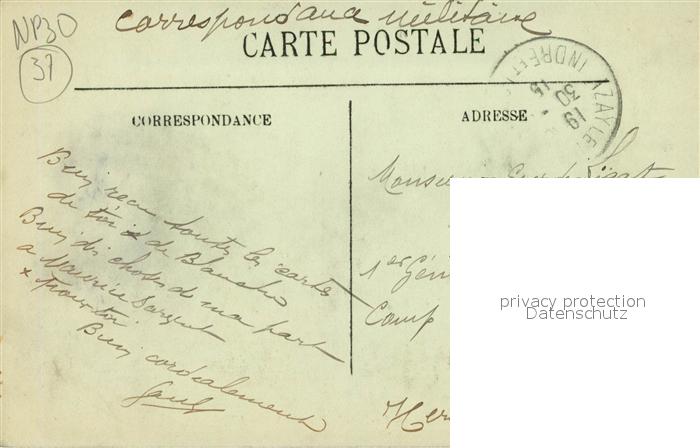 NP30
37
Correspondance militaire
CARTE POSTALE
INDRE ET
AZAY LE
15
30
19
CORRESPONDANCE
ADRESSE
Bien reçu toutes les cartes
de toi & de Blanche
Bien des choses de ma part
a Maurice Sargent
& pour toi.
Bien cordialement
Monsieur
1er Géni
Camp
privacy protection
Datenschutz